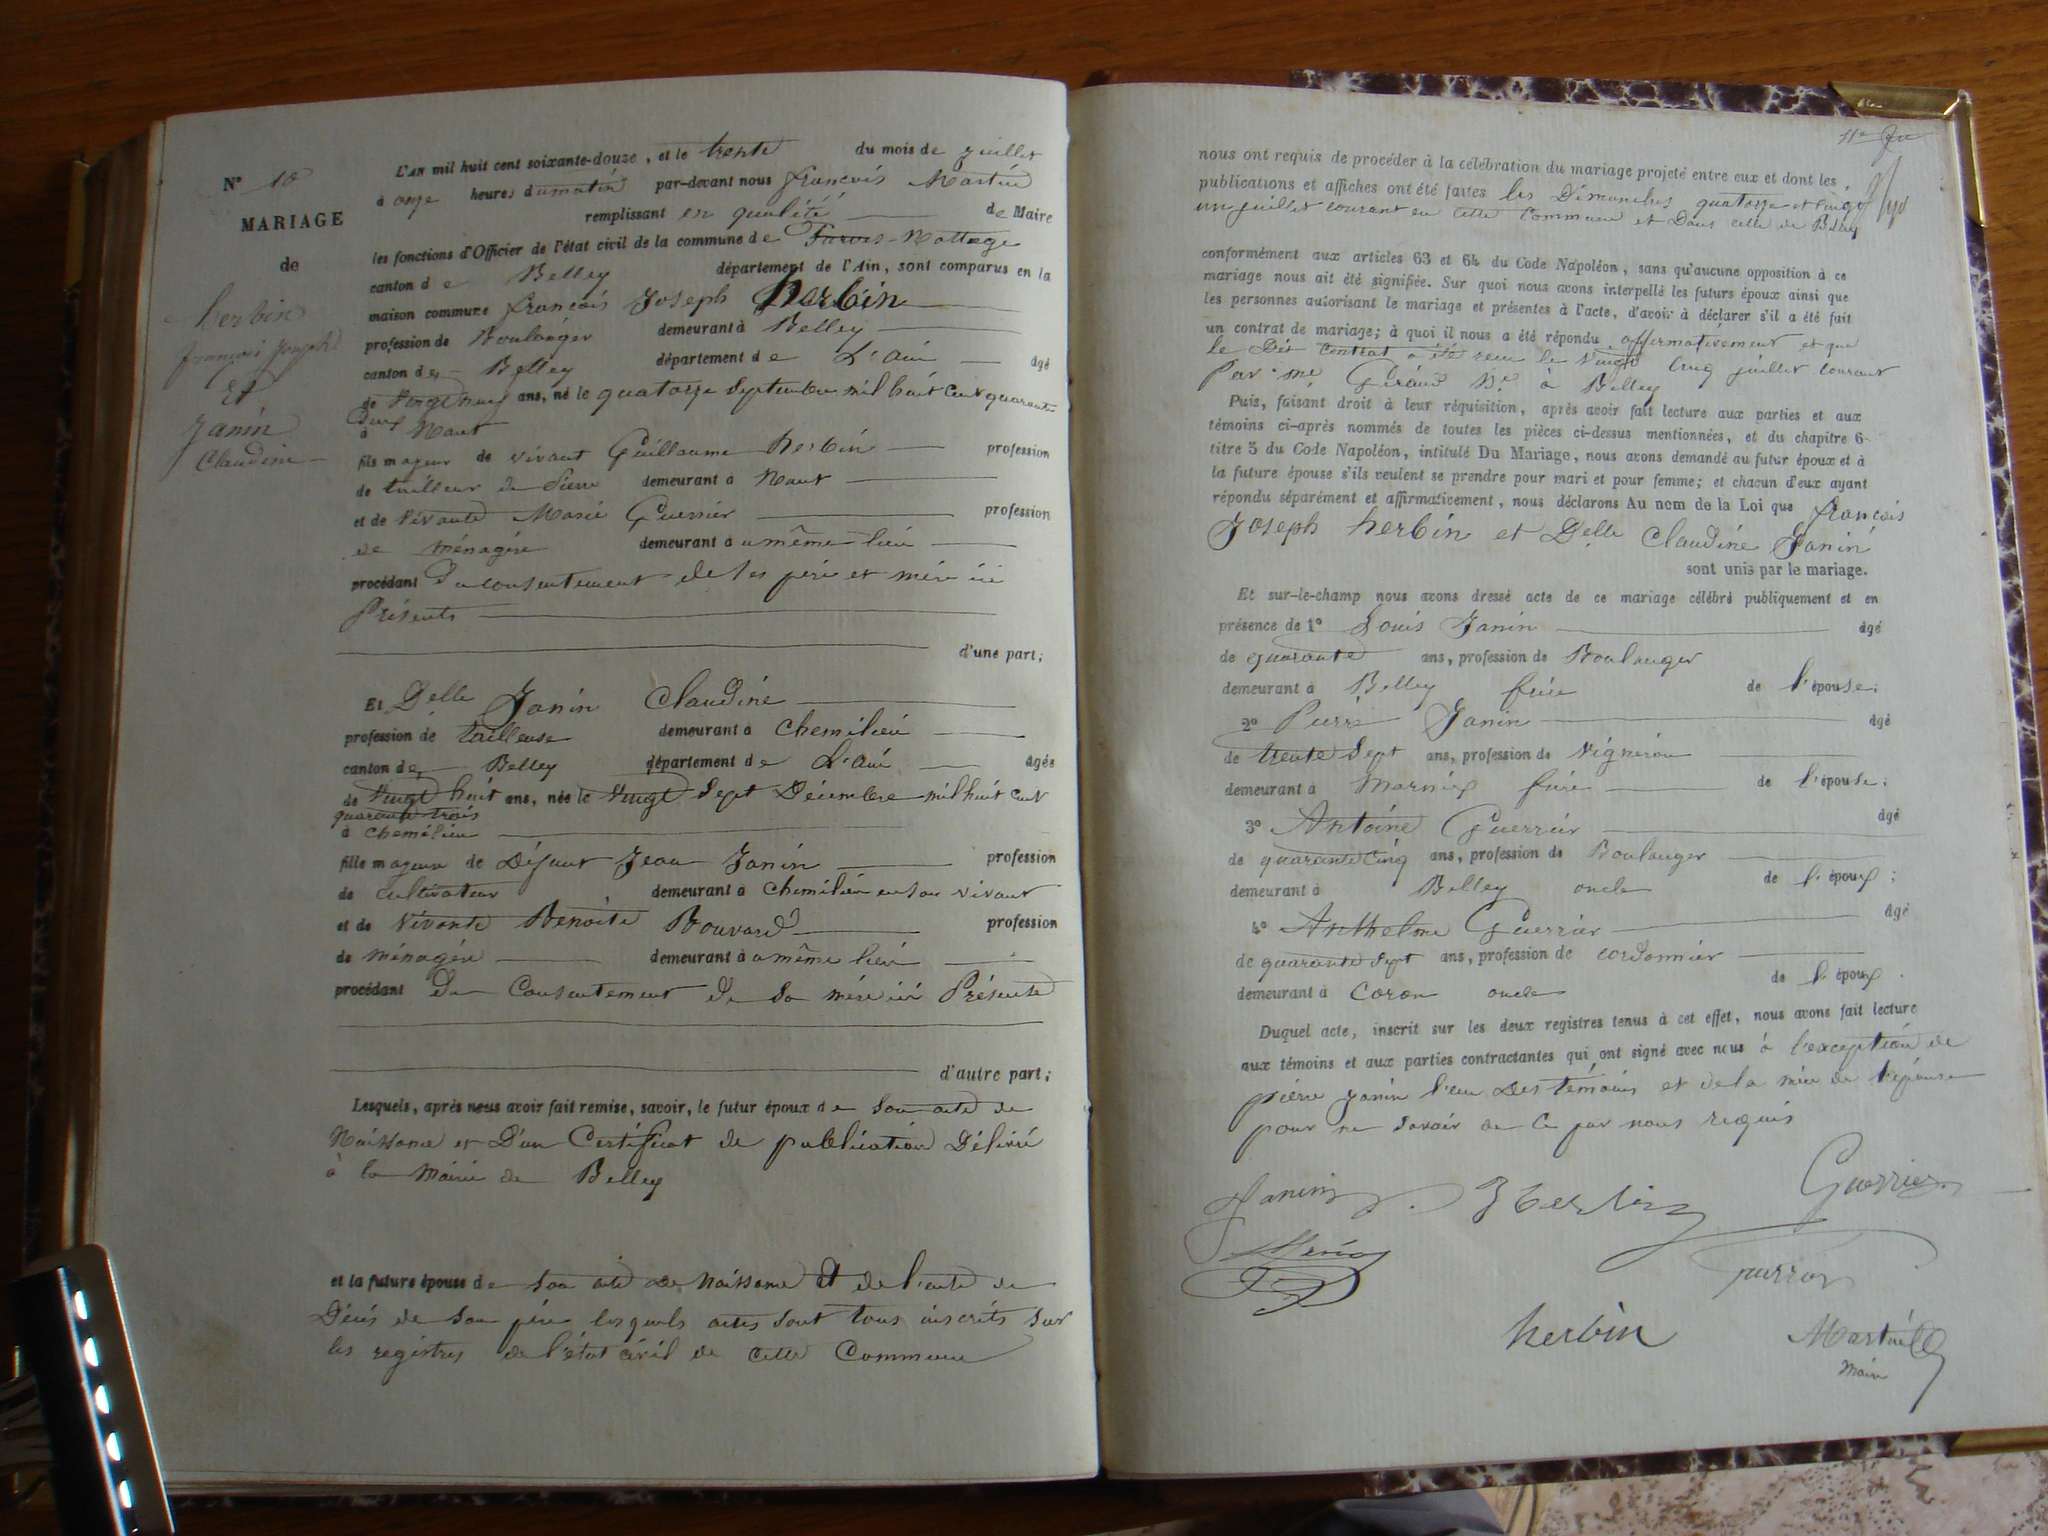 N° 10
MARIAGE
de
herbin
françois Joseph
Et
Janin
Claudine
L'AN mil huit cent soixante-douze, et le trente du mois de juillet
à onze heures du matin par-devant nous françois Martin
remplissant en qualité de Maire
les fonctions d'Officier de l'état civil de la commune de Parves-Nattage
canton de Belley département de l'Ain, sont comparus en la
maison commune françois Joseph herbin
profession de Boulanger demeurant à Belley
canton de Belley département de L'ain âgé
de vingt neuf ans, né le quatorze Septembre mil huit cent quarante
deux
à Nant
fils majeur de vivant Guillaume herbin profession
de tailleur de Pierre demeurant à Nant
et de vivante Marie Guerrier profession
de ménagère demeurant a même lieu
procédant du consentement de ses père et mère ici
Présents
d'une part;
Et Delle Janin Claudine
profession de tailleuse demeurant à Chemilieu
canton de Belley département de L'ain âgée
de Vingt huit ans, née le Vingt Sept Décembre mil huit cent
quarante trois
à Chemilieu
fille majeure de Défunt Jean Janin profession
de Cultivateur demeurant à Chemilieu en son vivant
et de vivante Benoite Bouvard profession
de ménagère demeurant a même lieu
procédant du Consentement de sa mère ici Présente
d'autre part;
Lesquels, après nous avoir fait remise, savoir, le futur époux de son acte de
Naissance et D'un Certificat de publication Délivré
à la Mairie de Belley
et la future épouse de son acte de Naissance Et de l'acte de
Décès de son père lesquels actes sont tous inscrits sur
les registres de l'état civil de cette Commune
nous ont requis de procéder à la célébration du mariage projeté entre eux et dont les
publications et affiches ont été faites les Dimanches quatorze et vingt
un juillet courant en cette Commune et Dans celle de Belley
conformément aux articles 63 et 64 du Code Napoléon, sans qu'aucune opposition à ce
mariage nous ait été signifiée. Sur quoi nous avons interpellé les futurs époux ainsi que
les personnes autorisant le mariage et présentes à l'acte, d'avoir à déclarer s'il a été fait
un contrat de mariage; à quoi il nous a été répondu affirmativement et que
le Dit Contrat a été recu le Vingt Cinq juillet courant
Par me Giraud Nre à Belley
Puis, faisant droit à leur réquisition, après avoir fait lecture aux parties et aux
témoins ci-après nommés de toutes les pièces ci-dessus mentionnées, et du chapitre 6
titre 5 du Code Napoléon, intitulé Du Mariage, nous avons demandé au futur époux et à
la future épouse s'ils veulent se prendre pour mari et pour femme; et chacun d'eux ayant
répondu séparément et affirmativement, nous déclarons Au nom de la Loi que françois
Joseph herbin et Delle Claudine Janin
sont unis par le mariage.
Et sur-le-champ nous avons dressé acte de ce mariage célébré publiquement et en
présence de 1° Louis Janin âgé
de quarante ans, profession de Boulanger
demeurant à Belley frère de l'épouse;
2° Pierre Janin âgé
de trente Sept ans, profession de Vigneron
demeurant à frère de l'épouse;
3° Antoine Guerrier âgé
de quarante Cinq ans, profession de Boulanger
demeurant à Belley oncle de l'époux;
4° Anthelme Guerrier âgé
de quarante Sept ans, profession de cordonnier
demeurant à Coron oncle de l'époux.
Duquel acte, inscrit sur les deux registres tenus à cet effet, nous avons fait lecture
aux témoins et aux parties contractantes qui ont signé avec nous à l'exception de
pierre Janin l'un Des témoins et de la mère de l'épouse
pour ne Savoir de Ce par nous requis
Janin J herbin Guerrier
herbin Martin
Maire